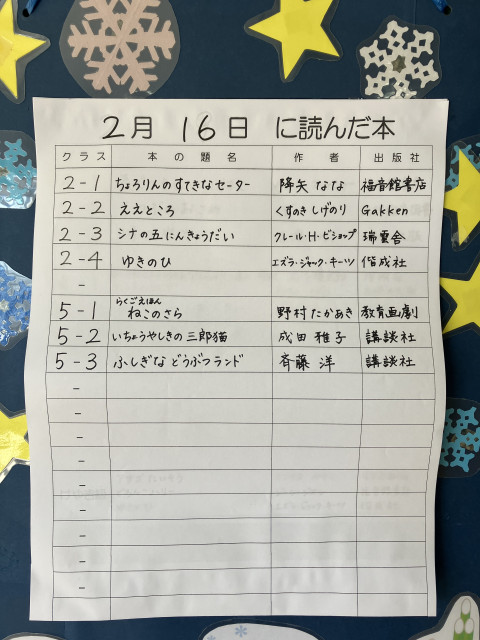 2月 16日 に読んだ本
クラス 本の題名 作者 出版社
2-1 ちょろりんのすてきなセーター 降矢 なな 福音館書店
2-2 ええところ くすのき しげのり Gakken
2-3 シナの五にんきょうだい クレール・H・ビショップ 瑞雲舎
2-4 ゆきのひ エズラ・ジャック・キーツ 偕成社
-
らくごえほん
5-1 ねこのさら 野村たかあき 教育画劇
5-2 いちょうやしきの三郎猫 成田 雅子 講談社
5-3 ふしぎな どうぶつランド 斉藤 洋 講談社
-
-
-
-
-
-
-
-
-